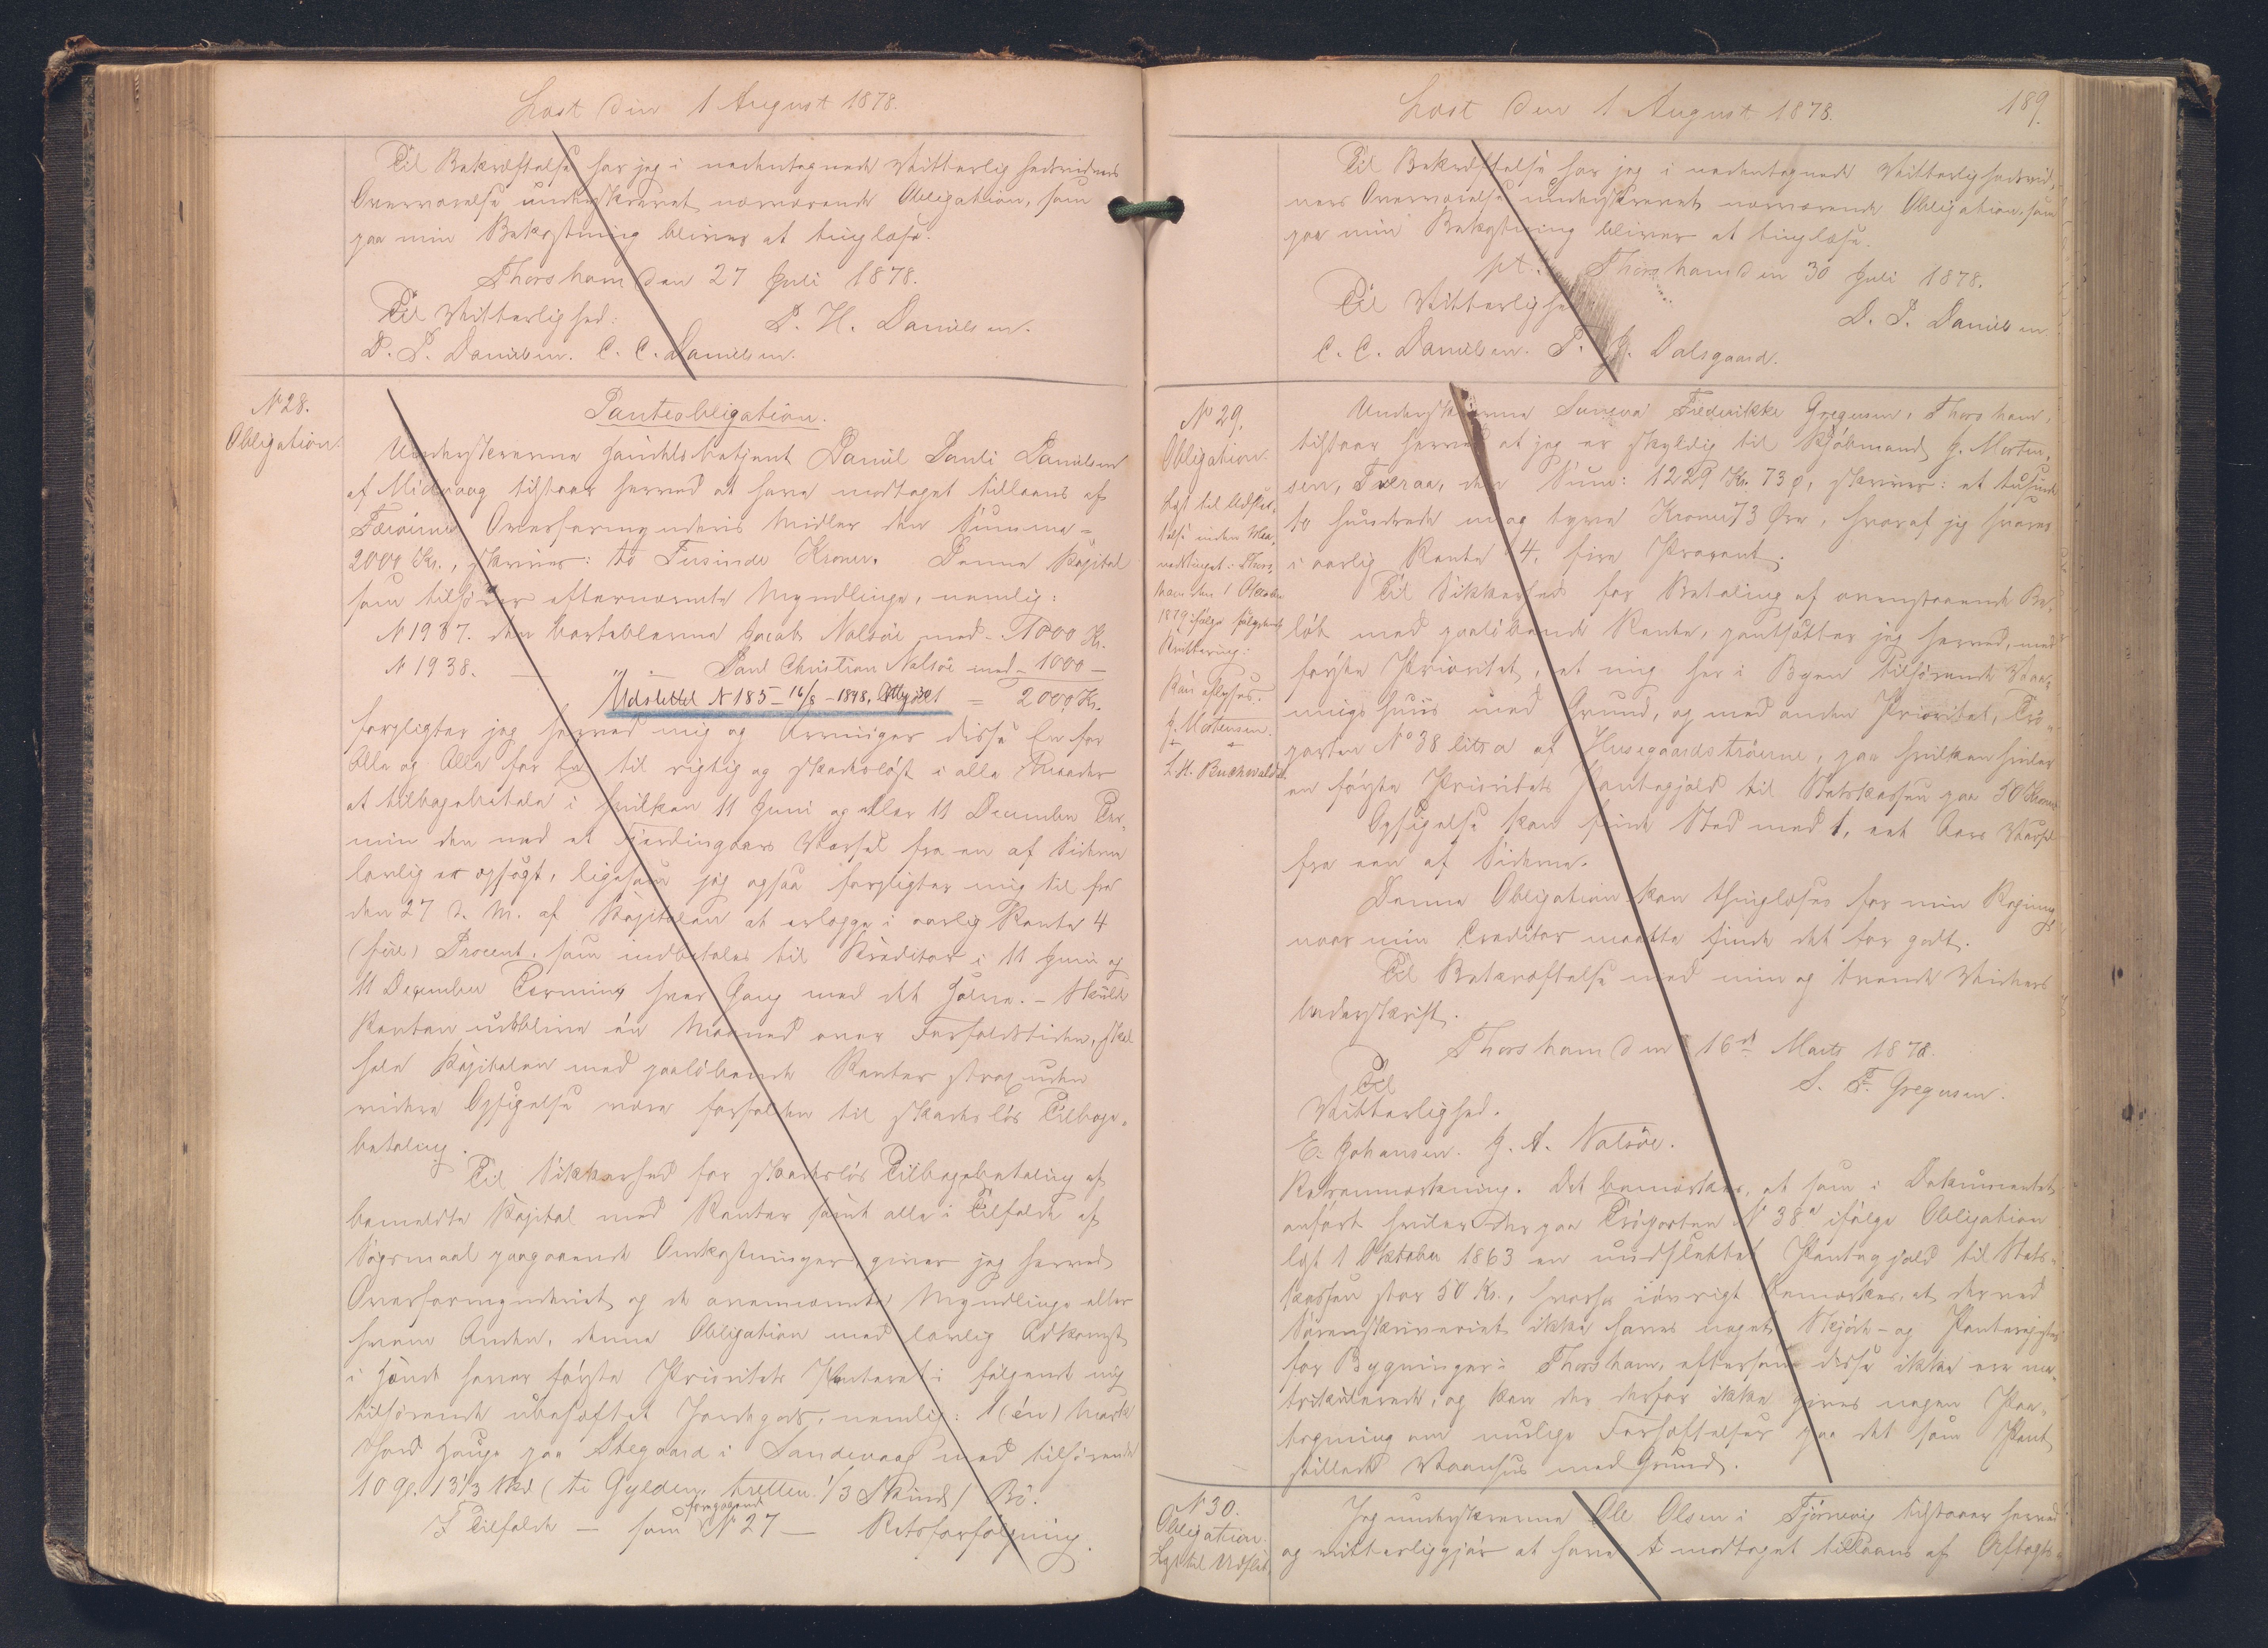 Læst den 1 August 1878.
Til Bekræftelse har jeg i nedentegnede Vitterligheds vidners
Overværelse underskrevet nærværende Obligation, som
paa min Bekostning bliver at tinglæse.
Thorshavn den 27 Juli 1878.
Til Vitterlighed: P. H. Danielsen.
D. P. Danielsen. C. C. Danielsen.
N 28.
Obligation.
Panteobligation.
Underskrevne Handelsbetjent Daniel Pauli Danielsen
af Midvaag tilstaar herved at have modtaget tillaans af
Færøernes Overformynderis Midler den Summa =
2000 Kr., skriver: to Tusinde Kroner. Denne Kapital
som tilhører efternævnte Myndlinge, nemlig:
N 1937. den bortebleven Jacob Nolsöe med - 1000 Kr.
N 1938. — " — Poul Christian Nolsöe med - 1000 —
Udslettet N 185 - 16/8 - 1898. = 2000 Kr.
forpligter jeg herved mig og Arvinger disse En for
Alle og Alle for En til rigtig og skadesløst i alle Maader
at tilbagebetale i hvilken 11 Juni og eller 11 December Ter-
min den med et Fjerdingaars Varsel fra en af Siderne
lovlig er opsagt, ligesom jeg ogsaa forpligter mig til fra
den 27 d. M. af Kapitalen at erlægge i aarlig Rente 4
(fire) Procent, som indbetales til Kreditor i 11 Juni og
11 December Termin hver Gang med det Halve. - Skulde
Renten udblive én Maaned over Forfaldstiden, skal
hele Kapitalen med paaløbende Renter strax uden
videre Opsigelse være forfalden til skadesløs Tilbage-
betaling.
Til Sikkerhed for skadesløs Tilbagebetaling af
bemeldte Kapital med Renter samt alle i Tilfælde af
Søgsmaal paagaaende Omkostninger, giver jeg herved
Overformynderiet og de ovennævnte Myndlinge eller
hvem Anden, denne Obligation med lovlig Adkomst
i Hænde haver første Prioritets Panteret i følgende mig
tilhørende ubehæftet Jordegods, nemlig: 1 (én) Mark
Jord Hauge paa Stegaard i Sandevaag med tilhørende
10 Gl. 13 1/3 Skd (ti Gylden, tretten 1/3 Skind) Bö.
I Tilfælde — som foregaaende N 27 — Retsforfølgning.
Læst den 1 August 1878. 189.
Til Bekræftelse har jeg i nedentegnede Vitterlighedsvid-
ners Overværelse underskrevet nærværende Obligation, som
paa min Bekostning bliver at tinglæse.
pt. Thorshavn den 30 Juli 1878.
Til Vitterlighed D. P. Danielsen
C. C. Danielsen. J. Dalsgaard.
N 29.
Obligation.
Lyst til Udslet-
telse inden Maa-
nedstinget i Thors-
havn den 1 Oktober
1879 ifølge følgende
Kvittering:
Kan aflyses.
J. Mortensen.
L. H. Buchwaldt
Underskrevne Sunneva Frederikke Gregersen, Thorshavn,
tilstaar herved at jeg er skyldig til Kjøbmand J. Morten-
sen, Tveraa, den Sum: 1229 Kr. 73 ø, skriver: et tusinde
to hundrede ni og tyve Kroner 73 Øre, hvoraf jeg svarer
i aarlig Rente 4, fire Procent.
Til Sikkerhed for Betaling af ovenstaaende Be-
løb med paaløbende Rente, pantsætter jeg herved, med
første Prioritet, et mig her i Byen tilhørende Vaa-
ningshuus med Grund, og med anden Prioritet, Trö-
parten No 38 litra a af Husegaardströerne, paa hvilken hviler
en første Prioritets Pantegjæld til Statskassen paa 50 Kroner
Opsigelse kan finde Sted med 1, eet Aars Varsel
fra een af Siderne.
Denne Obligation kan thinglæses for min Regning
naar min Creditor maatte finde det for godt.
Til Bekræftelse med min og tvende Vidners
Underskrift.
Thorshavn den 16de Marts 1878.
Til S. F. Gregersen.
Vitterlighed.
E. Johansen. J. A. Nolsöe.
Retsanmærkning. Det bemærkes, at som i Dokumentet
anført hviler der paa Tröparten N 38a ifølge Obligation
læst 1 Oktober 1863 en uudslettet Pantegjæld til Stats-
kassen stor 50 Kr., hvorhos iøvrigt bemærkes, at der ved
Sorenskriveriet ikke haves noget Skjøde- og Panteregister
for Bygninger i Thorshavn, eftersom disse ikke ere ma-
trikulerede, og kan der derfor ikke gives nogen Paa-
tegning om mulige Forhæftelser paa det som Pant
stillede Vaanhus med Grund.
N 30.
Obligation.
Lyst til Udslet-
Jeg underskrevne Ole Olsen i Tjörnevig tilstaaer herved
og vitterliggjør at have modtaget tillaans af Aftægts-